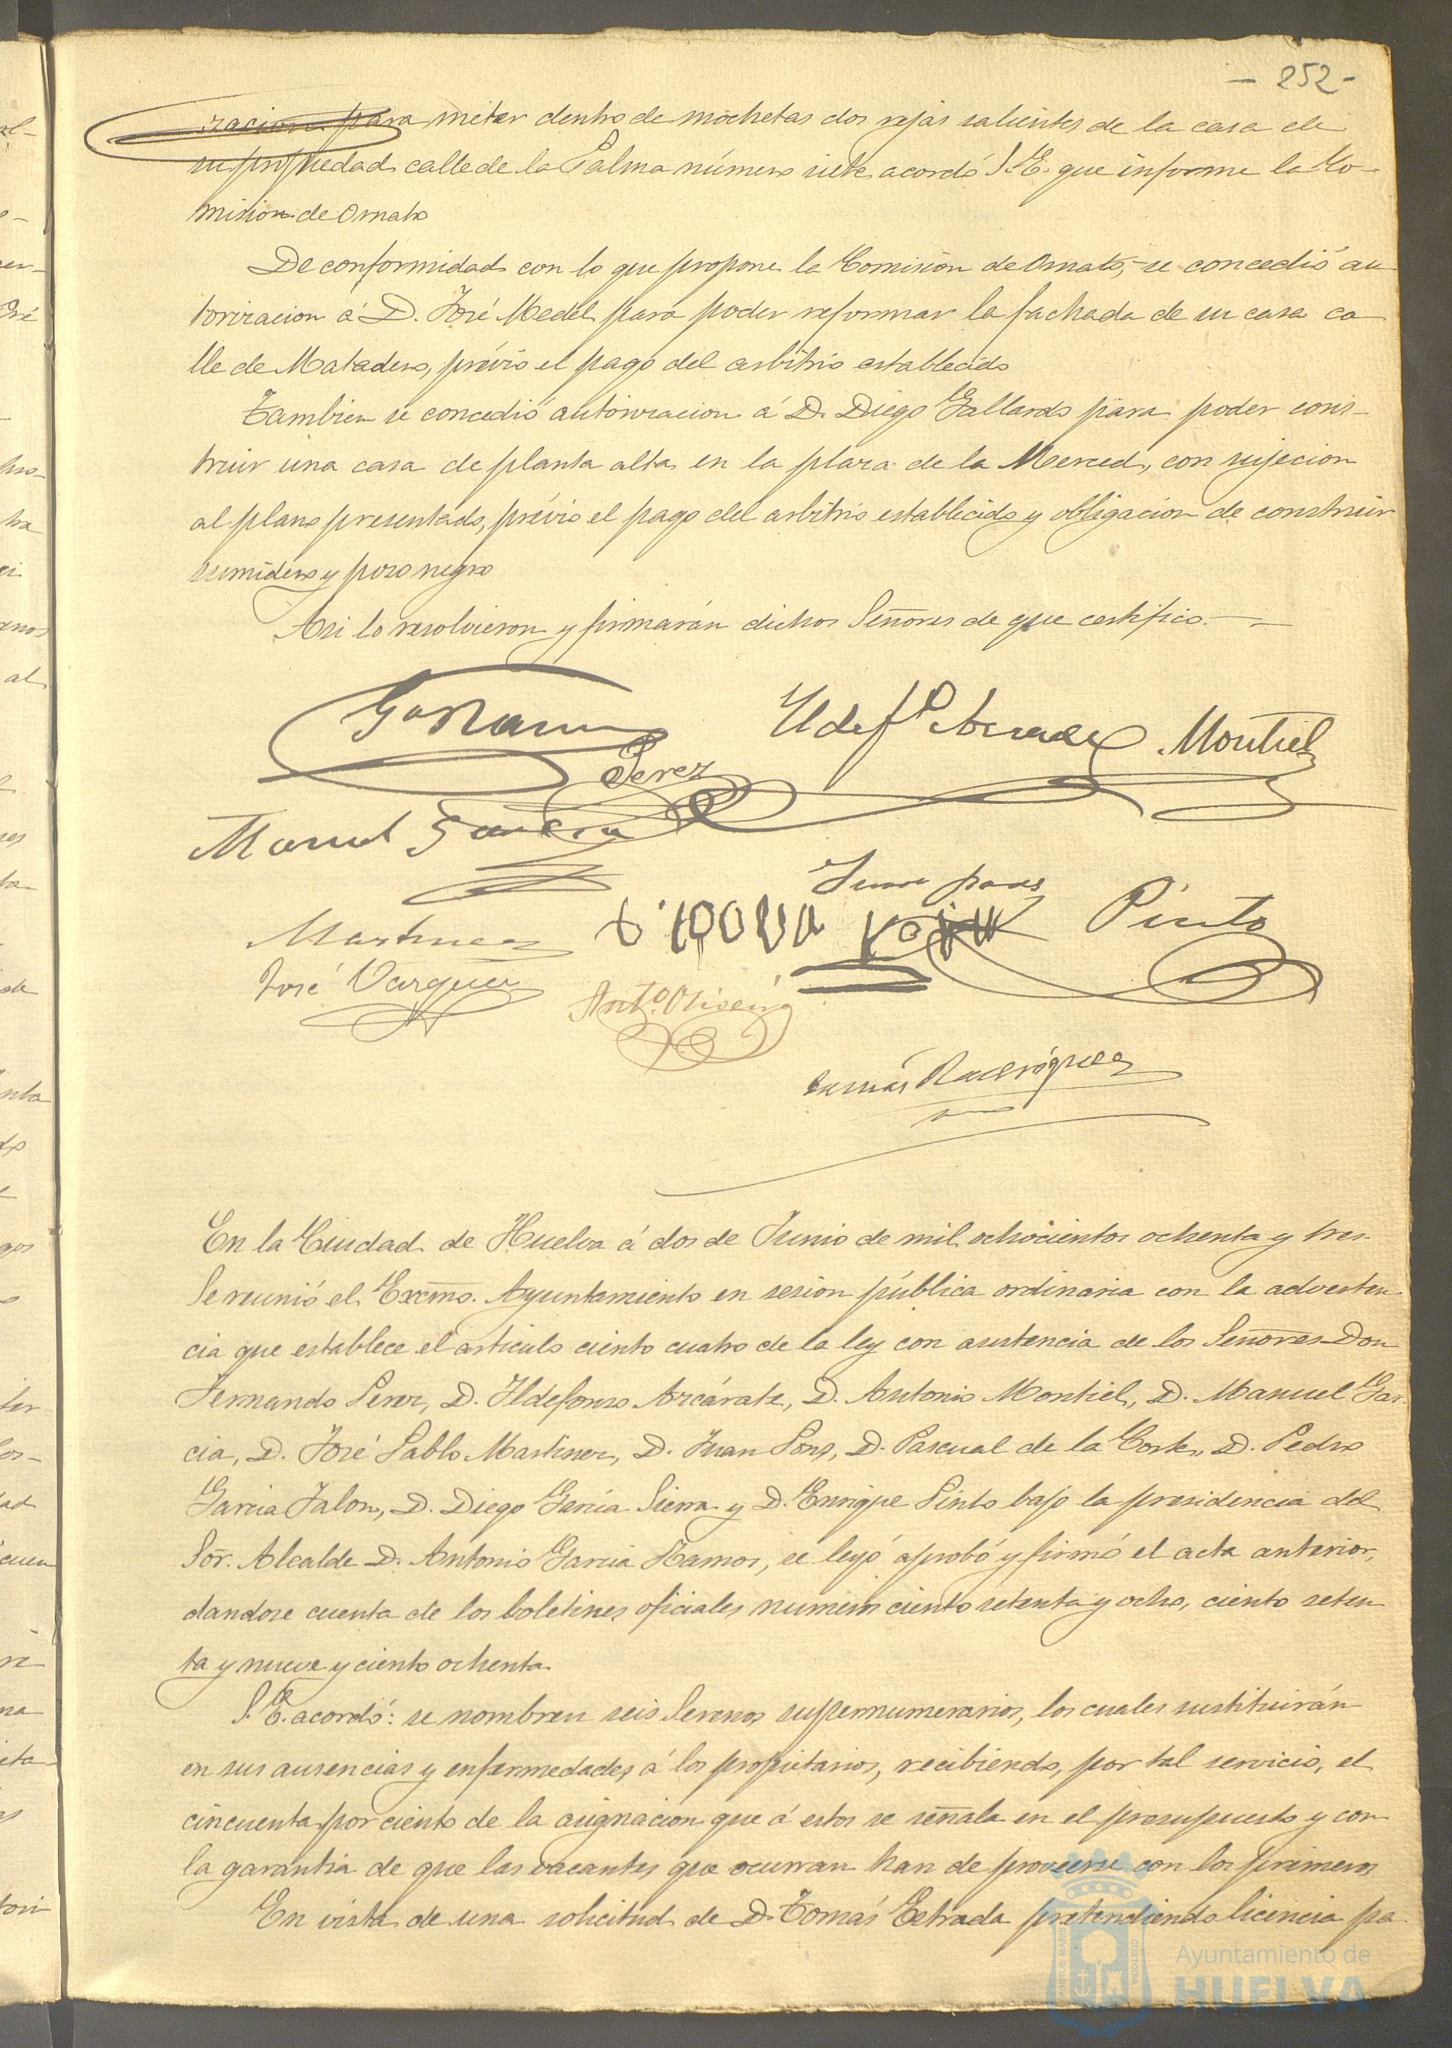 - 252 -
racion para meter dentro de mochetas dos rejas salientes de la casa de
su propiedad calle de la Palma número siete acordó S.E. que informe la Co-
mision de Ornato
De conformidad con lo que propone la Comisión de Ornato, se concedió au
torizacion á D. José Medel para poder reformar la fachada de su casa ca
lle de Matadero, prévio el pago del arbitrio establecido
Tambien se concedió autorizacion á D. Diego Gallardo para poder cons-
truir una casa de planta alta en la plaza de la Merced, con sujecion
al plano presentado, prévio el pago del arbitrio establecido y obligacion de construir
sumidero y pozo negro
Asi lo resolvieron y firmarán dichos Señores de que certifico.
Ga Ramos
Ildefº Azcarate
Montiel
Perez
Manuel Garcia
Juan pons
Martinez
Pinto
José Vazquez
Antº. Oliveira
Tomás Rodriguez
En la Ciudad de Huelva á dos de Junio de mil ochocientos ochenta y tres
Se reunió el Excmo. Ayuntamiento en sesion pública ordinaria con la adverten
cia que establece el articulo ciento cuatro de la ley con asistencia de los Señores Don
Fernando Perez, D. Ildefonso Azcárate, D. Antonio Montiel, D. Manuel Gar-
cia, D. José Pablo Martinez, D. Juan Pons, D. Pascual de la Corte, D. Pedro
Garcia Jalon, D. Diego Garcia Sierra y D. Enrique Pinto bajo la presidencia del
Sor. Alcalde D. Antonio Garcia Ramos, se leyó aprobó y firmó el acta anterior,
dandose cuenta de los boletines oficiales numeros ciento setenta y ocho, ciento seten
ta y nueve y ciento ochenta
S.E. acordó: se nombren seis Serenos supernumerarios, los cuales sustituirán
en sus ausencias y enfermedades á los propietarios, recibiendo, por tal servicio, el
cincuenta por ciento de la asignacion que á estos se señala en el presupuesto y con
la garantia de que las vacantes que ocurran han de proveerse con los primeros
En vista de una solicitud de D. Tomás Estrada pretendiendo licencia pa
Ayuntamiento de
HUELVA